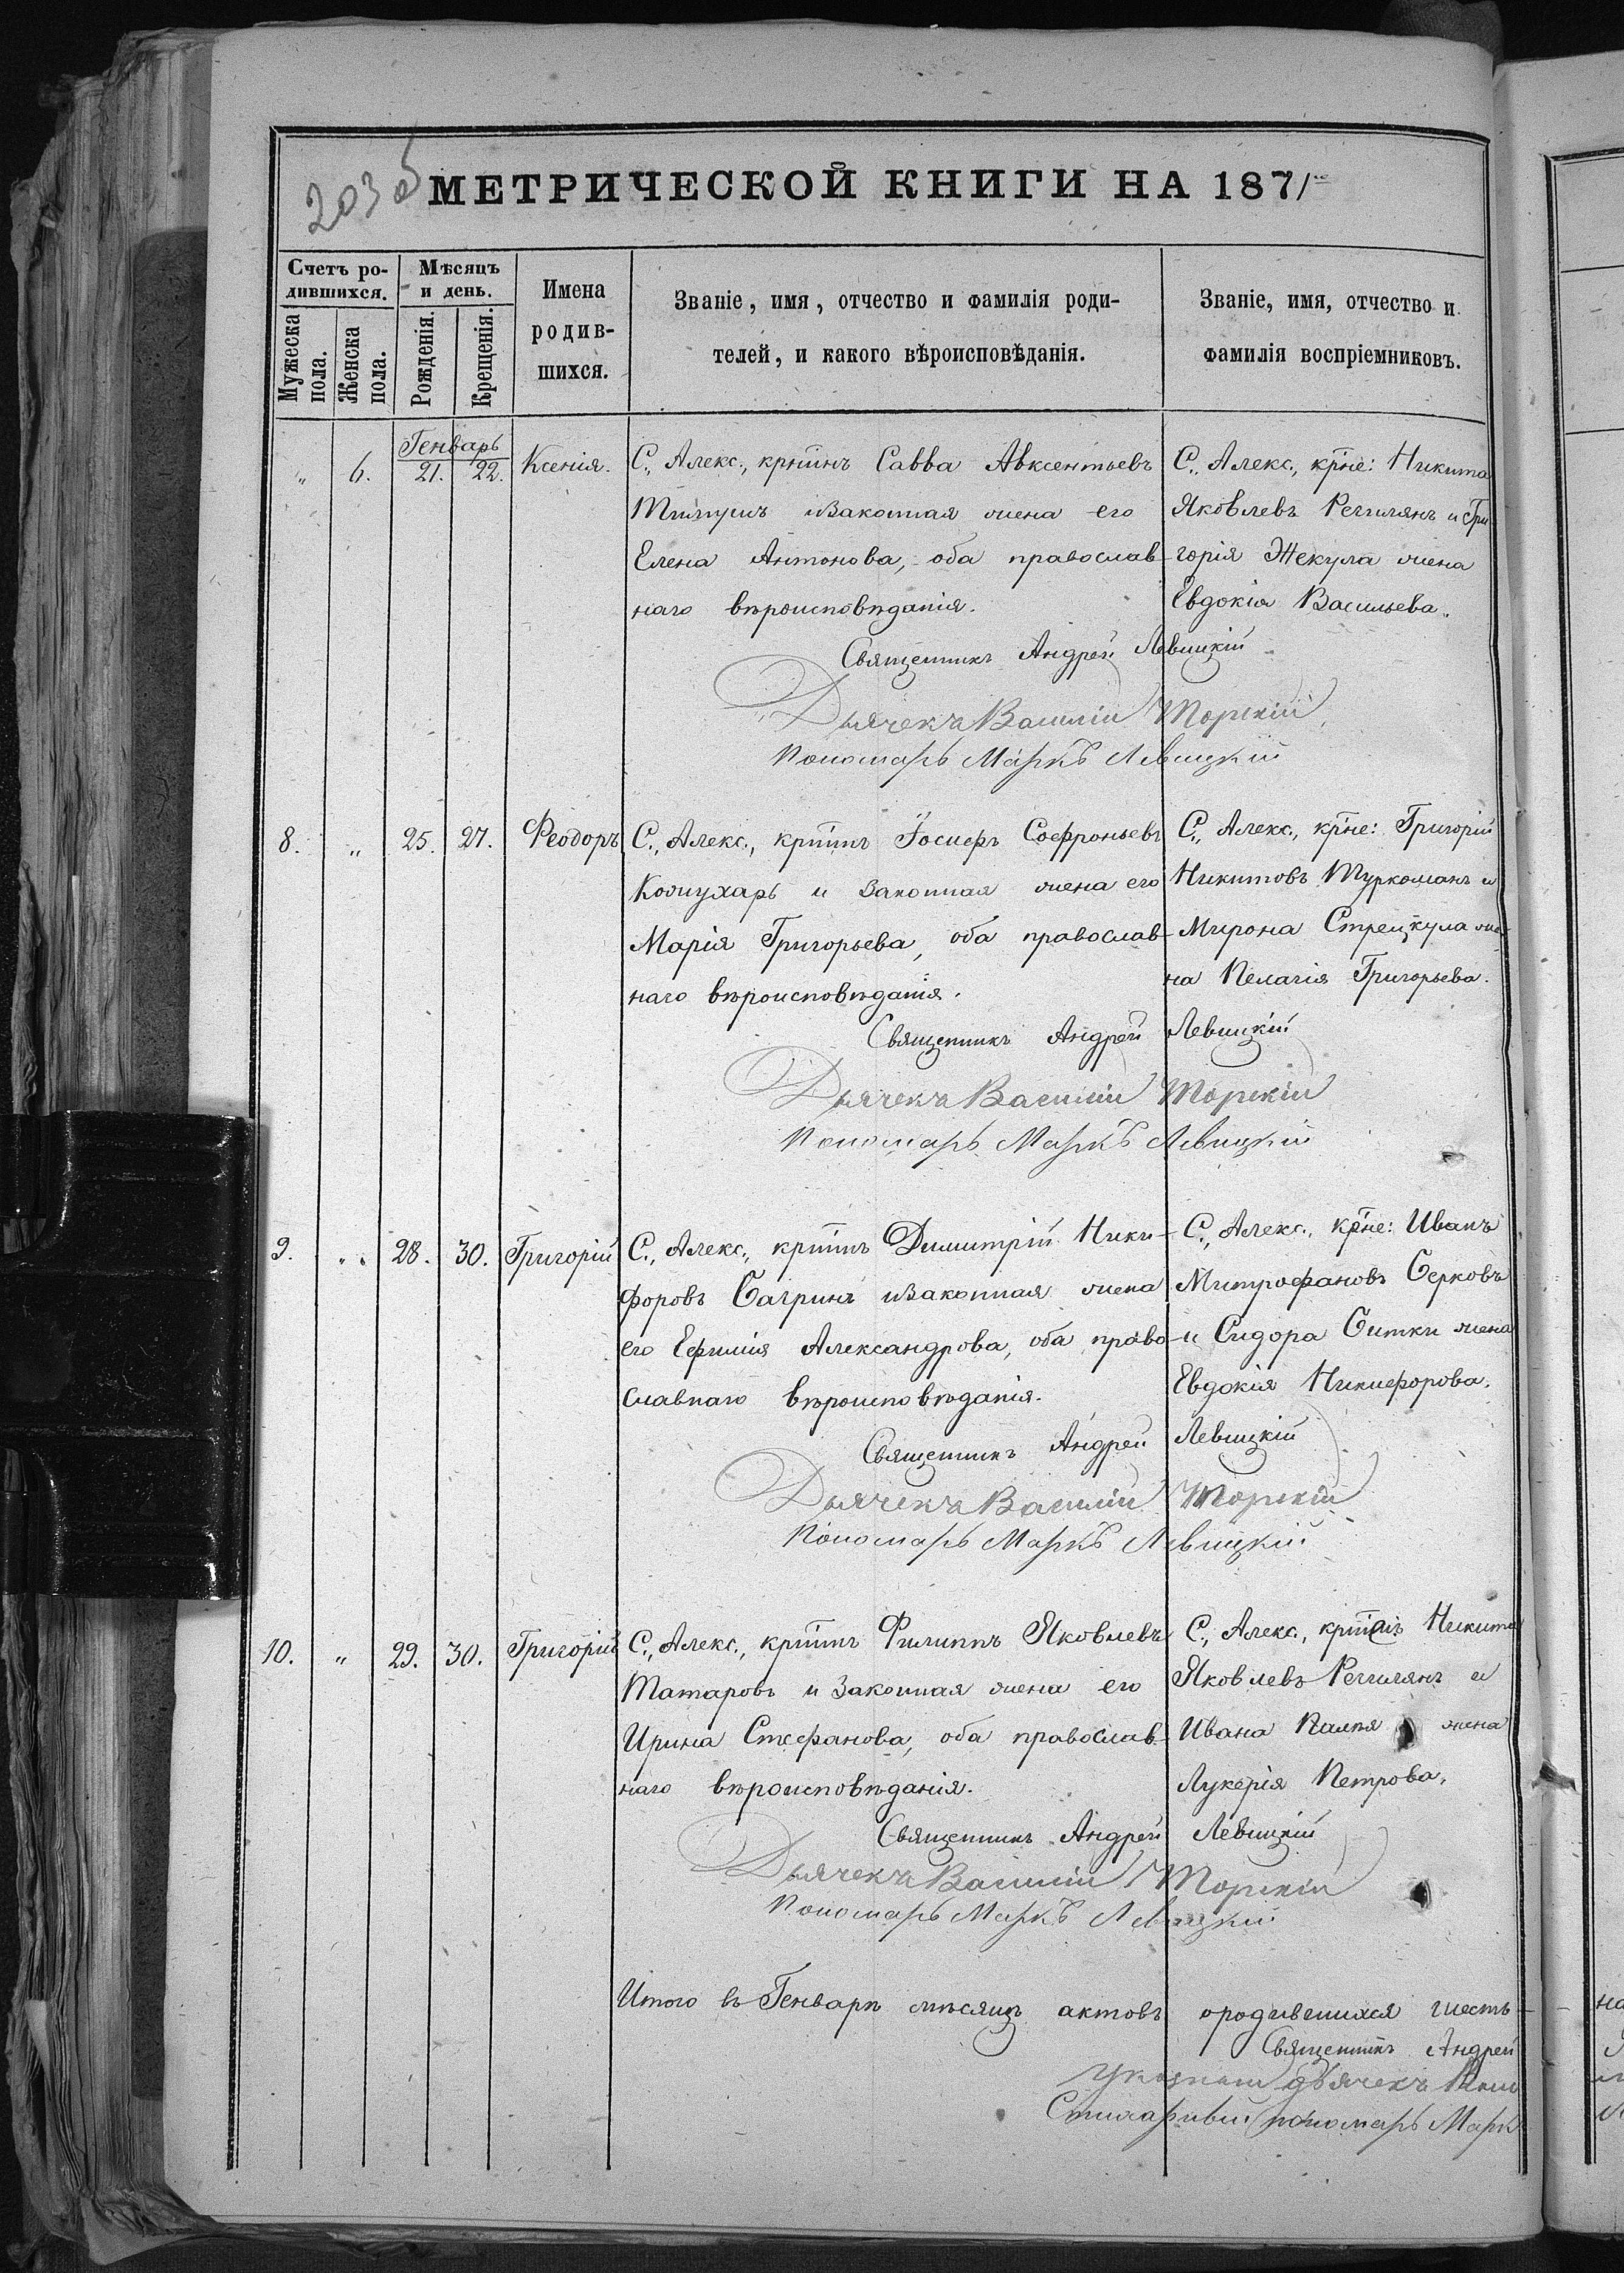 203 об
МЕТРИЧЕСКОЙ КНИГИ НА 1871
Счетъ родившихся.
Мѣсяцъ и день.
Мужеска пола.
Женска пола.
Рожденія.
Крещенія.
Имена родившихся.
Званіе, имя, отчество и фамилія роди-
телей, и какого вѣроисповѣданія.
Званіе, имя, отчество и
фамилія воспріемниковъ.
Генварь
„ 6. 21. 22. Ксенія.
С., Алекс., крт҃инъ Савва Авксентьевъ
и законная жена его
Елена Антонова, оба православ-
наго вѣроисповѣданія.
С., Алекс., кр҃не: Никита
Яковлевъ Речилянъ и Гри-
горія Жекула жена
Евдокія Васильева.
Священникъ Андрей Левицкій
Дьячекъ Василій Торскій
Пономарь Маркъ Левицкій
8. „ 25. 27. Феодоръ
С., Алекс., крт҃инъ Іосифъ Софроньевъ
Кожухарь и законная жена его
Марія Григорьева, оба православ-
наго вѣроисповѣданія.
С., Алекс., кр҃не: Григорій
Никитовъ Туркоманъ и
Мирона Стрецкула же-
на Пелагія Григорьева.
Священникъ Андрей Левицкій
Дьячекъ Василій Торскій
Пономарь Маркъ Левицкій
9. „ 28. 30. Григорій
С., Алекс., крт҃инъ Димитрій Ники-
форовъ Багринъ и законная жена
его Ефимія Александрова, оба право-
славнаго вѣроисповѣданія.
С., Алекс., кр҃не: Иванъ
Митрофановъ Серковъ
и Сидора Ситки жена
Евдокія Никифорова.
Священникъ Андрей Левицкій
Дьячекъ Василій Торскій
Пономарь Маркъ Левицкій
10. „ 29. 30. Григорій
С., Алекс., крт҃инъ Филиппъ Яковлевъ
Татаровъ и законная жена его
Ирина Стефанова, оба православ-
наго вѣроисповѣданія.
С., Алекс., крт҃инъ Никита
Яковлевъ Речилянъ и
Ивана жена
Лукерія Петрова.
Священникъ Андрей Левицкій
Дьячекъ Василій Торскій
Пономарь Маркъ Левицкій
Итого въ Генварѣ мѣсяцѣ актовъ о родившихся шесть-
Священникъ Андрей
дьячекъ
пономарь Марк